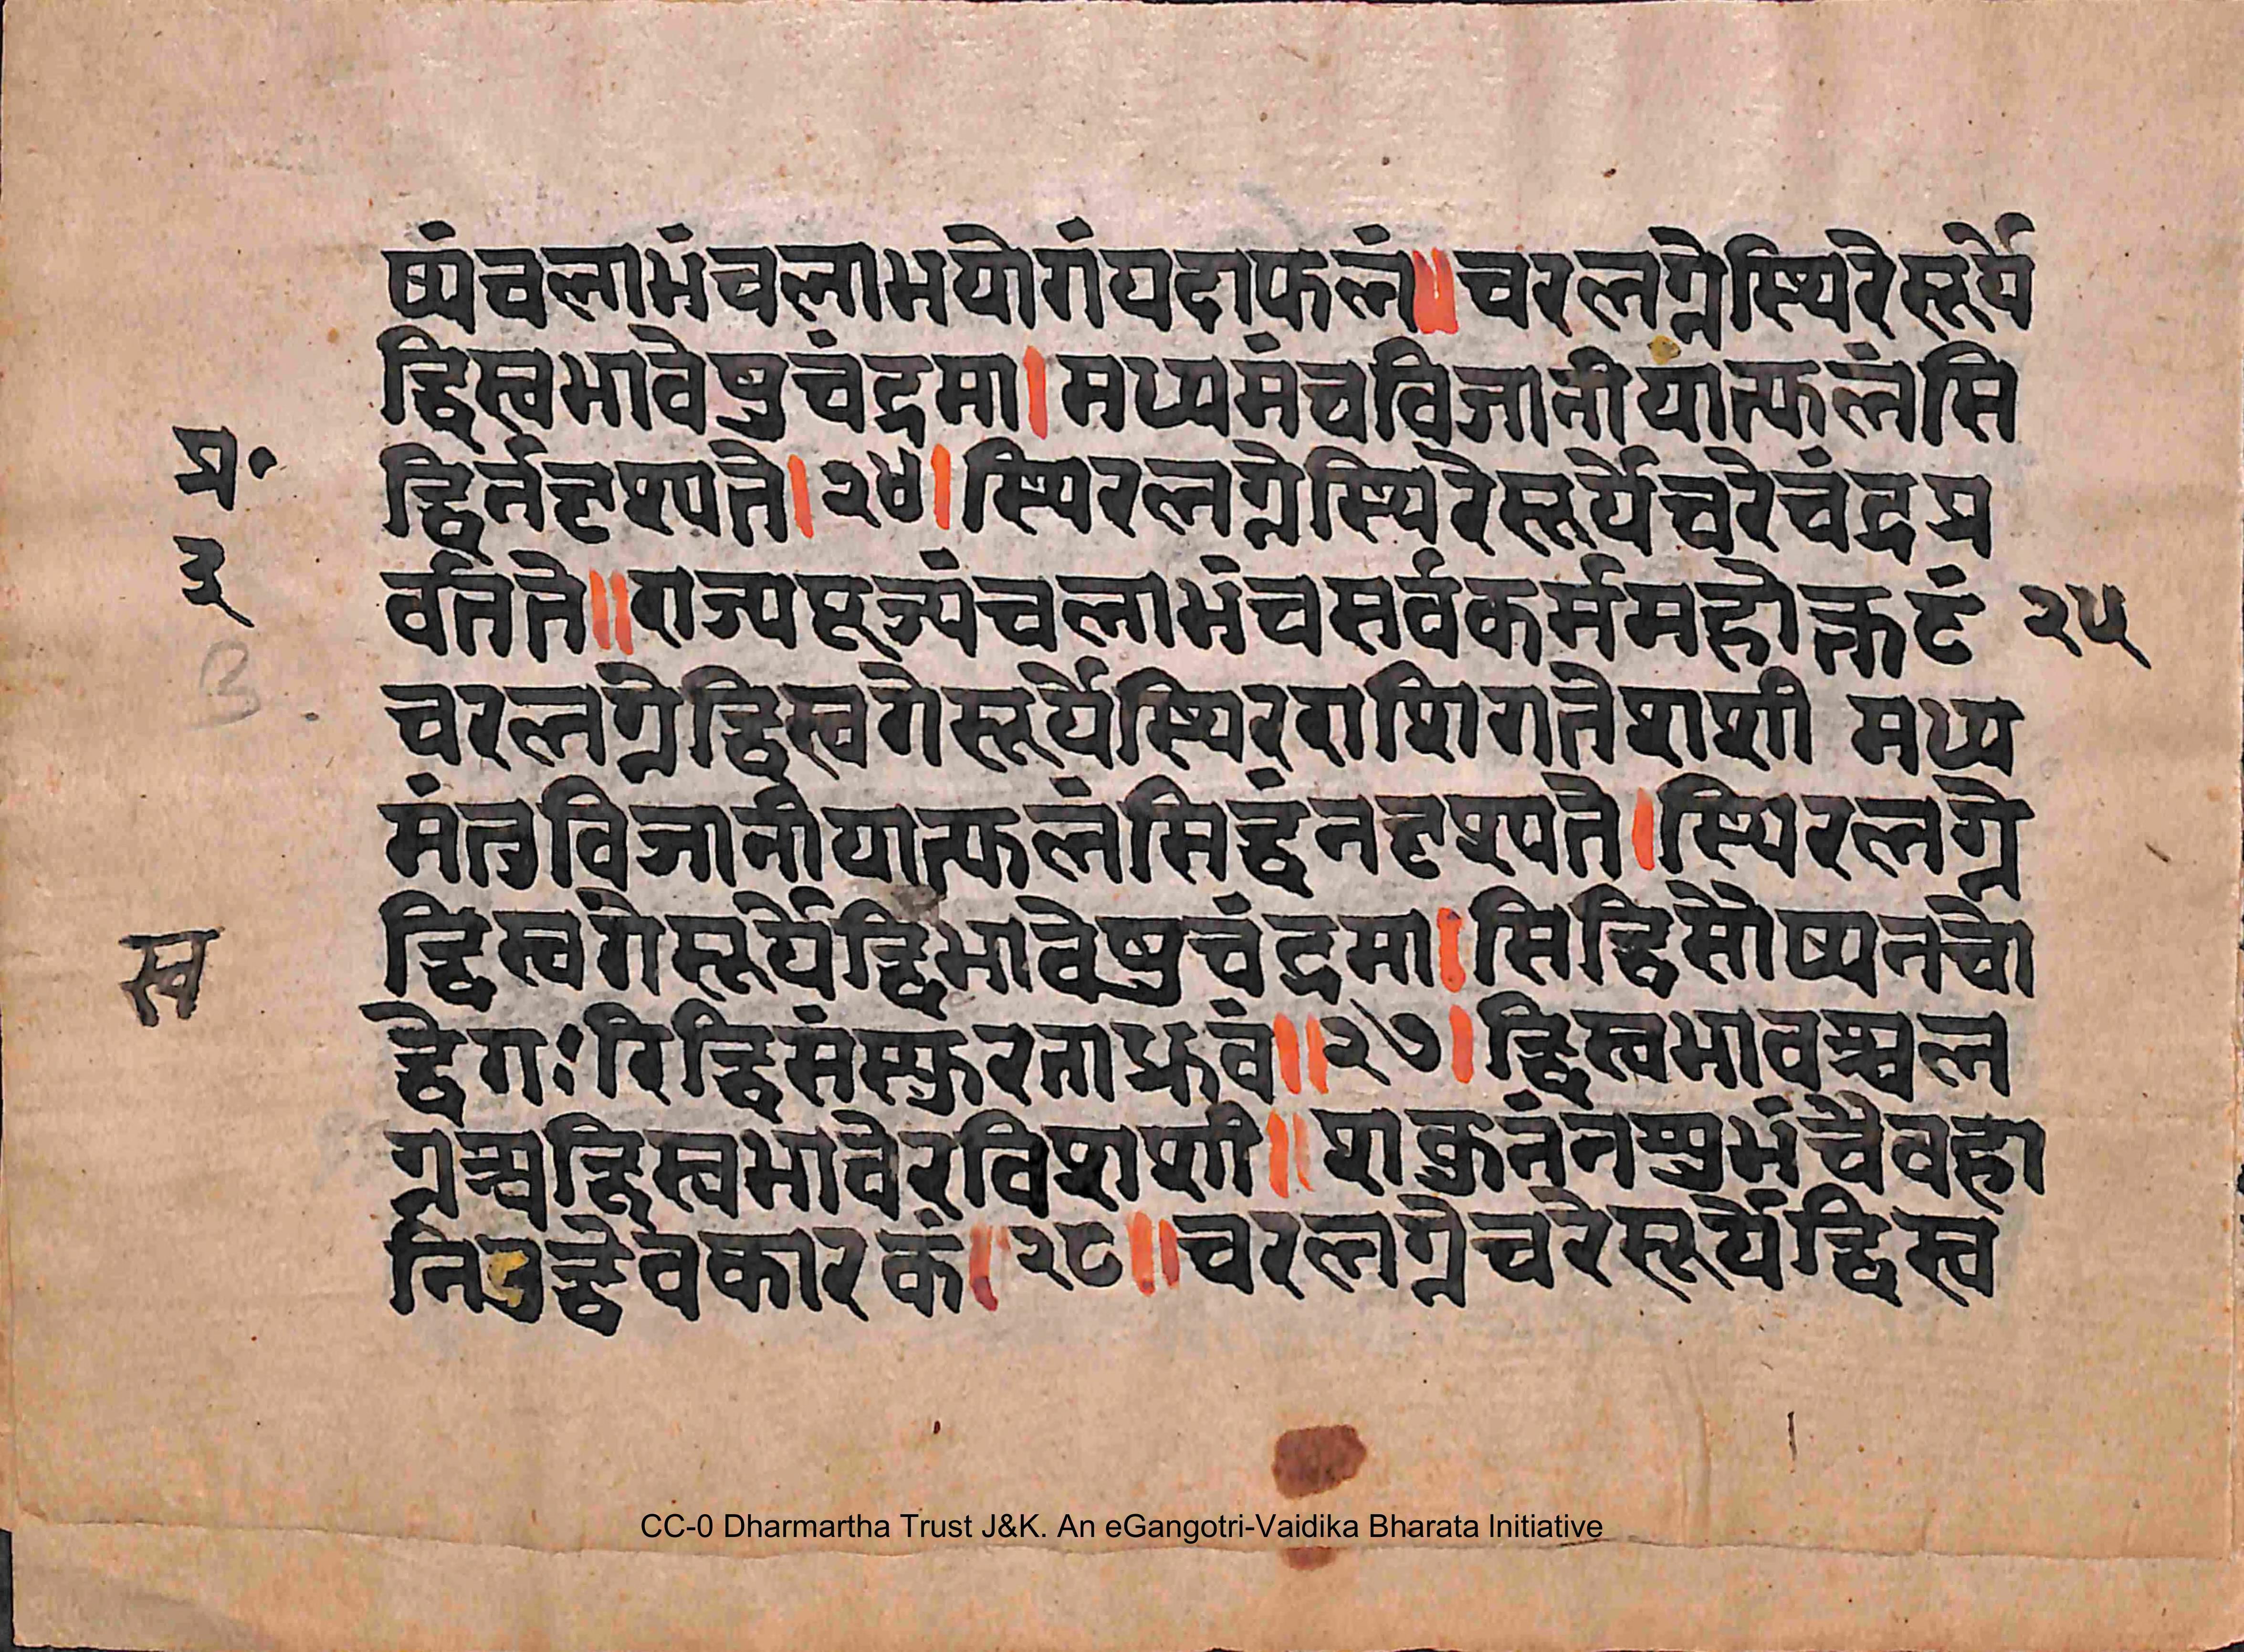 ष्यंचलाभंचलाभयोगंयदाफलं॥चरलग्नेस्थिरेसूर्ये
द्विस्वभावेषुचंद्रमा।मध्यमंचविजानीयांत्फलंसि
प्र॰
द्धिर्नदृश्यते।२४।स्थिरलग्नेस्थिरेसूर्येचरेचंद्रप्र
३
र्वतते॥राज्यपूज्यंचलाभंचसर्वकर्ममहोत्कटं २५
3.
चरलग्नेद्विस्वगेसूर्येस्थिरराशिगतेशशी मध्य
मंतुविजानीयात्फलंसिद्धंनदृश्यते।स्थिरलग्ने
स्व
द्विस्वगेसूर्येद्विभावेषुचंद्रमा।सिद्धिसौष्यनचो
द्वेगःरिद्धिसंस्फुरताध्रुवं॥२७।द्विस्वभावश्चल
ग्नश्चद्विस्वभावेरविशशी॥शकुनंनशुभंचैवहा
निउद्वेवकारकं।२८॥चरलग्नेचरेसूर्येद्विस्व
CC-0 Dharmartha Trust J&K. An eGangotri-Vaidika Bharata Initiative